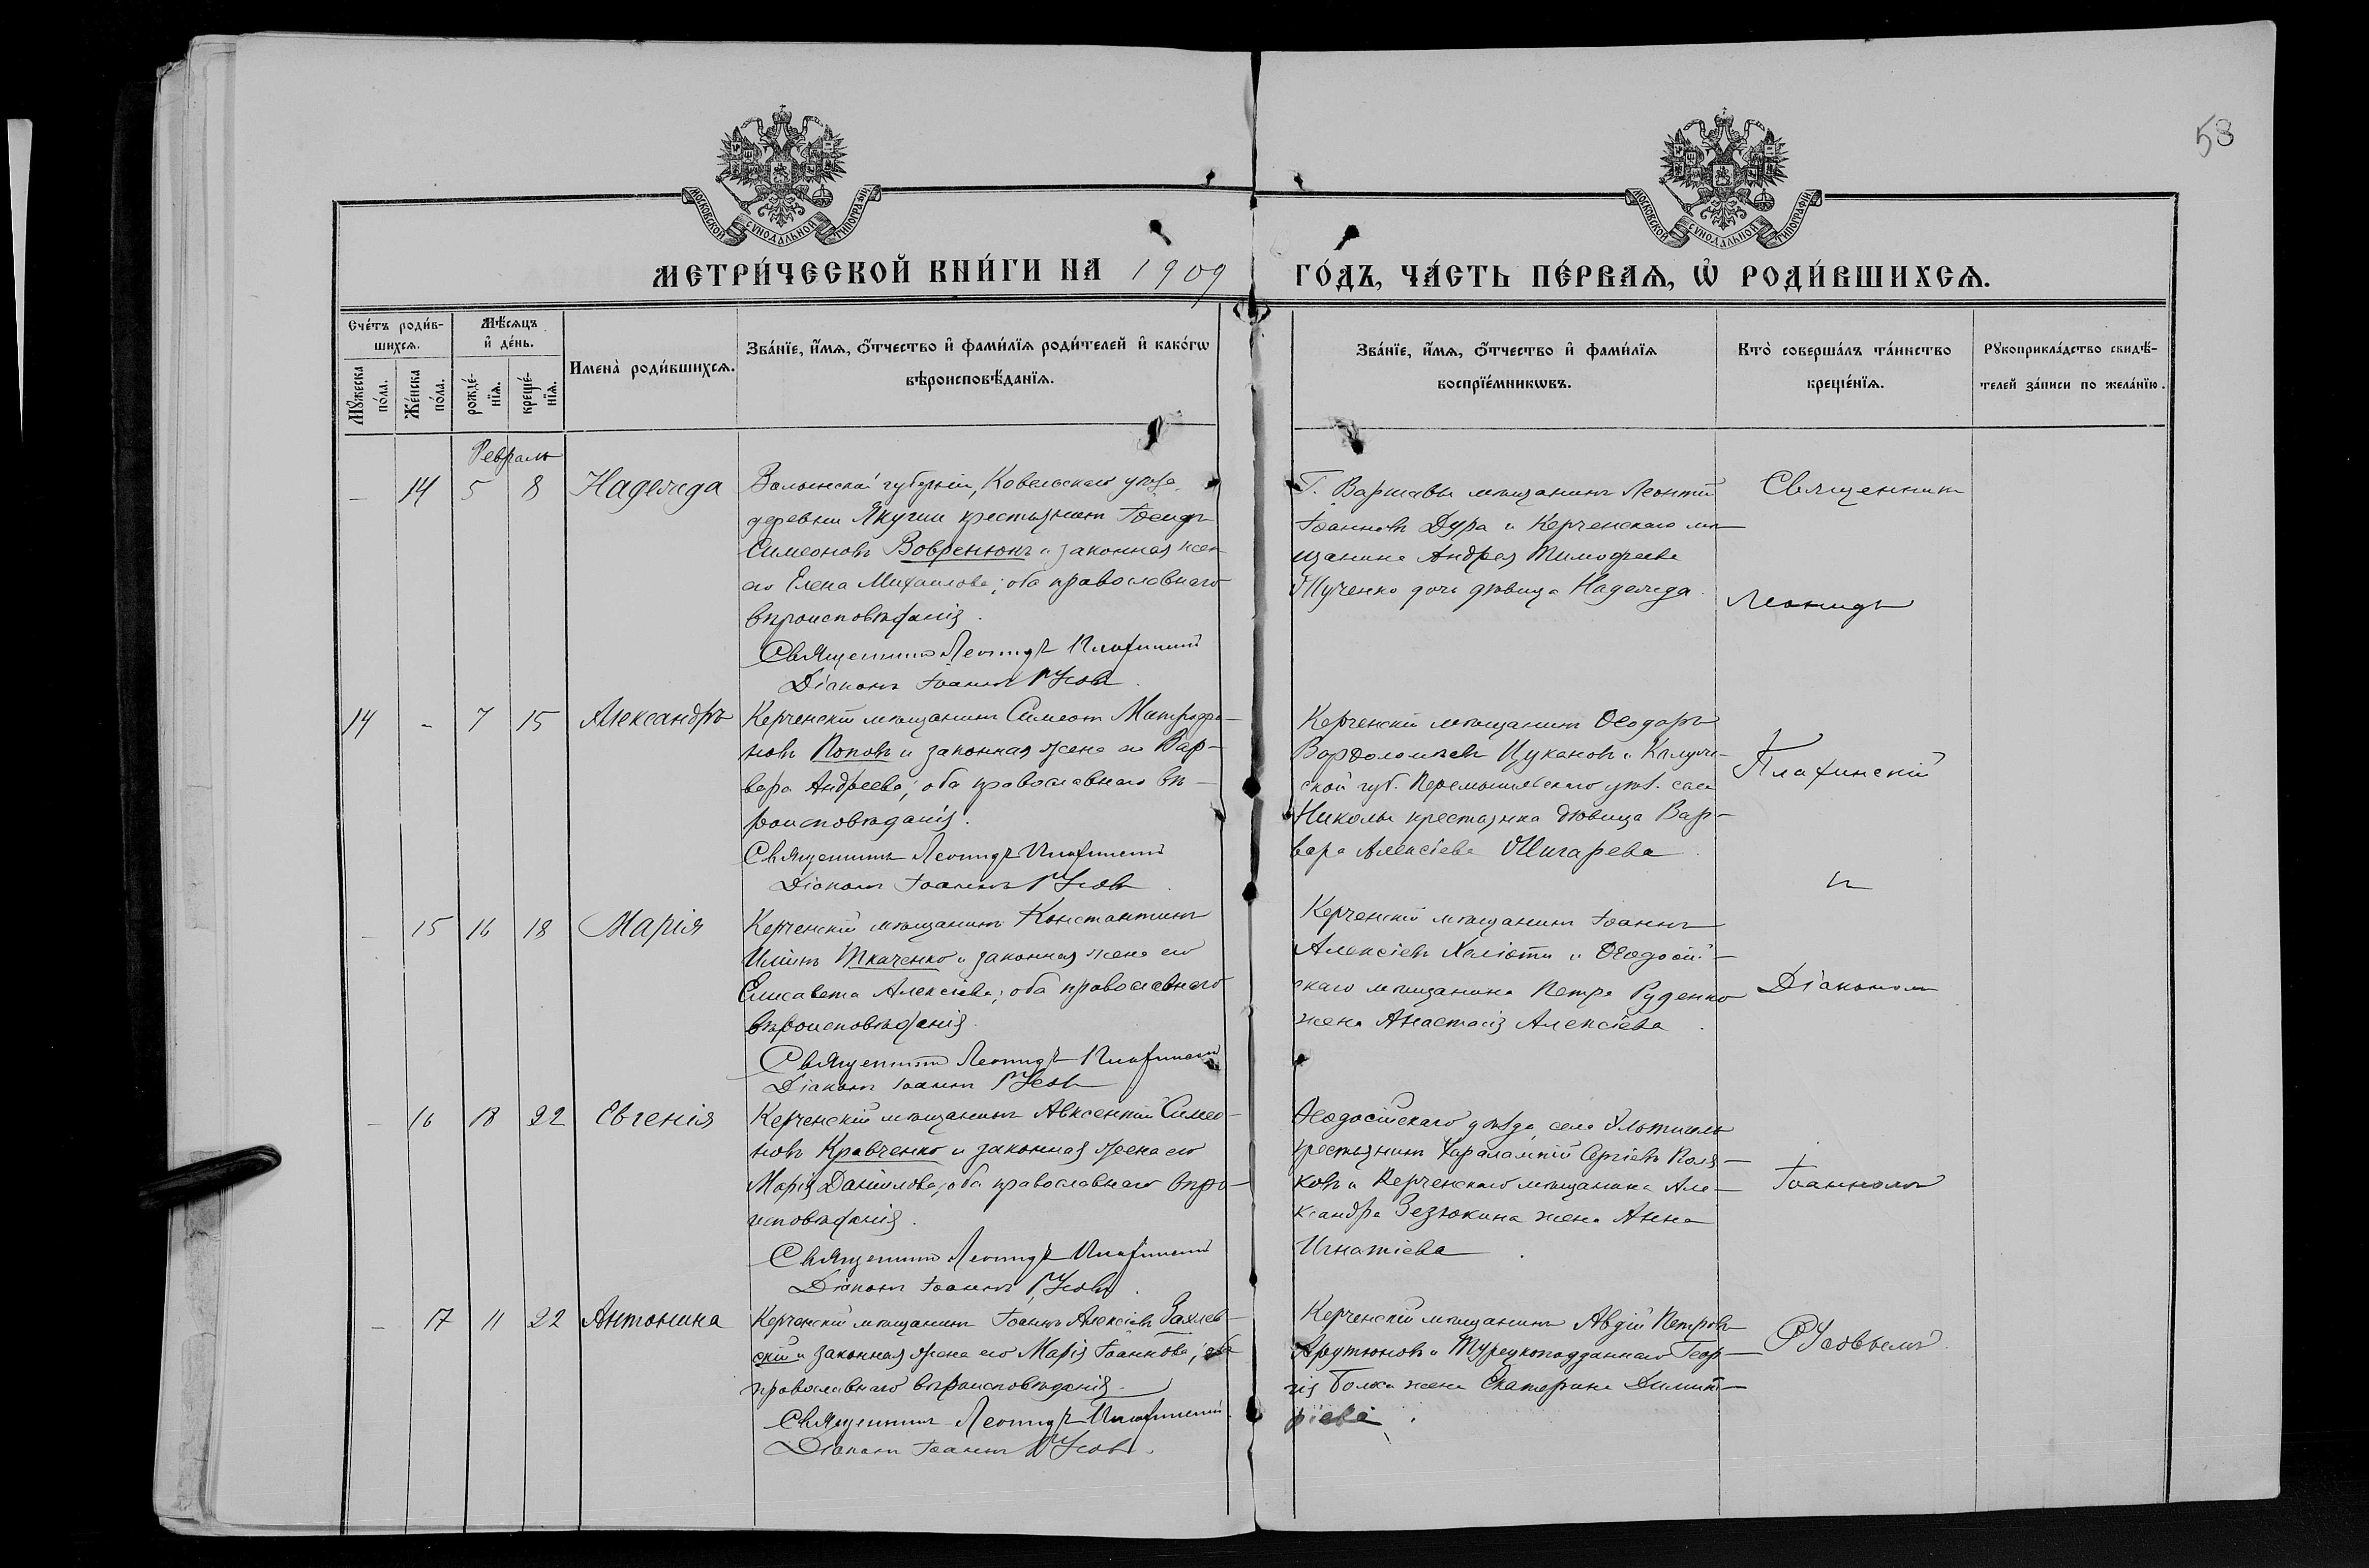 58
МОСКОВСКОЙ СѴНОДАЛЬНОЙ ТИПОГРАФІИ
МОСКОВСКОЙ СѴНОДАЛЬНОЙ ТИПОГРАФІИ
МЕТРИ́ЧЕСКОЙ КНИ́ГИ НА 1909 ГО́ДЪ, ЧА́СТЬ ПЕ́РВАѦ, Ѡ҆ РОДИ́ВШИХСѦ.
Сче́тъ роди́в-
шихсѧ.
Мꙋ́жеска
по́ла.
Же́нска
по́ла.
Мѣ́сѧцъ
и҆ де́нь.
рожде́-
нїѧ.
креще́-
нїѧ.
Имена̀ роди́вшихсѧ.
Зва́нїе, и҆́мѧ, ѻ҆́тчество и҆ фами́лїѧ роди́телей и҆ како́гѡ
вѣроисповѣ́данїѧ.
Зва́нїе, и҆́мѧ, ѻ҆́тчество и҆ фами́лїѧ
воспрїе́мникѡвъ.
Кто̀ соверша́лъ та́инство
креще́нїѧ.
Рꙋкоприкла́дство свидѣ́-
телей за́писи по жела́нїю.
Февраль
— 14 5 8 Надежда
Волынской губерніи, Ковельскаго уѣзда
деревни крестьянинъ
Симеоновъ Вовренюкъ и законная жена
его Елена Михаилова; оба православнаго
вѣроисповѣданія.
Священникъ Леонидъ Плахинскій
Діаконъ Іоаннъ Усовъ.
Г. Варшавы мѣщанинъ Леонтій
Іоанновъ Дура и Керченскаго мѣ-
щанина Андрея Тимофеева
дочь дѣвица Надежда.
Священникъ
Леонидъ
14 - 7 15 Александръ
Керченскій мѣщанинъ Симеонъ Митрофа-
новъ Поповъ и законная жена его Вар-
вара Андреева; оба православнаго вѣ-
роисповѣданія.
Священникъ Леонидъ Плахинскій
Діаконъ Іоаннъ Усовъ.
Керченскій мѣщанинъ Ѳеодоръ
Варѳоломеевъ Цукановъ и Калуж-
ской губ. Перемышльскаго уѣз. села
Николы крестьянка дѣвица Вар-
вара Алексіева Шигарева.
Плахинскій
съ
— 15 16 18 Марія
Керченскій мѣщанинъ Константинъ
Иліинъ Ткаченко и законная жена его
Елисавета Алексіева; оба православнаго
вѣроисповѣданія.
Священникъ Леонидъ Плахинскій
Діаконъ Іоаннъ Усовъ
Керченскій мѣщанинъ Іоаннъ
Алексіевъ и Ѳеодосій-
скаго мѣщанина Петра Руденко
жена Анастасія Алексіева.
Діакономъ
— 16 18 22 Евгенія
Керченскій мѣщанинъ Авксентій Симео-
новъ Кравченко и законная жена его
Марія Даніилова; оба православнаго вѣро-
исповѣданія.
Священникъ Леонидъ Плахинскій
Діаконъ Іоаннъ Усовъ.
Ѳеодосійскаго уѣзда, села
крестьянинъ Харалампій Сергіевъ Поля-
ковъ и Керченскаго мѣщанина Але-
ксандра Зезюкина жена Анна
Игнатіева.
Іоанномъ
— 17 11 22 Антонина
Керченскій мѣщанинъ Іоаннъ Алексіевъ Захаев-
скій и законная жена его Марія Іоаннова; оба
православнаго вѣроисповѣданія.
Священникъ Леонидъ Плахинскій
Діаконъ Іоаннъ Усовъ.
Керченскій мѣщанинъ Авдій Петровъ
Арутюновъ и Турецкоподданнаго Геор-
гія жена Екатерина Димит-
ріева.
Усовымъ.